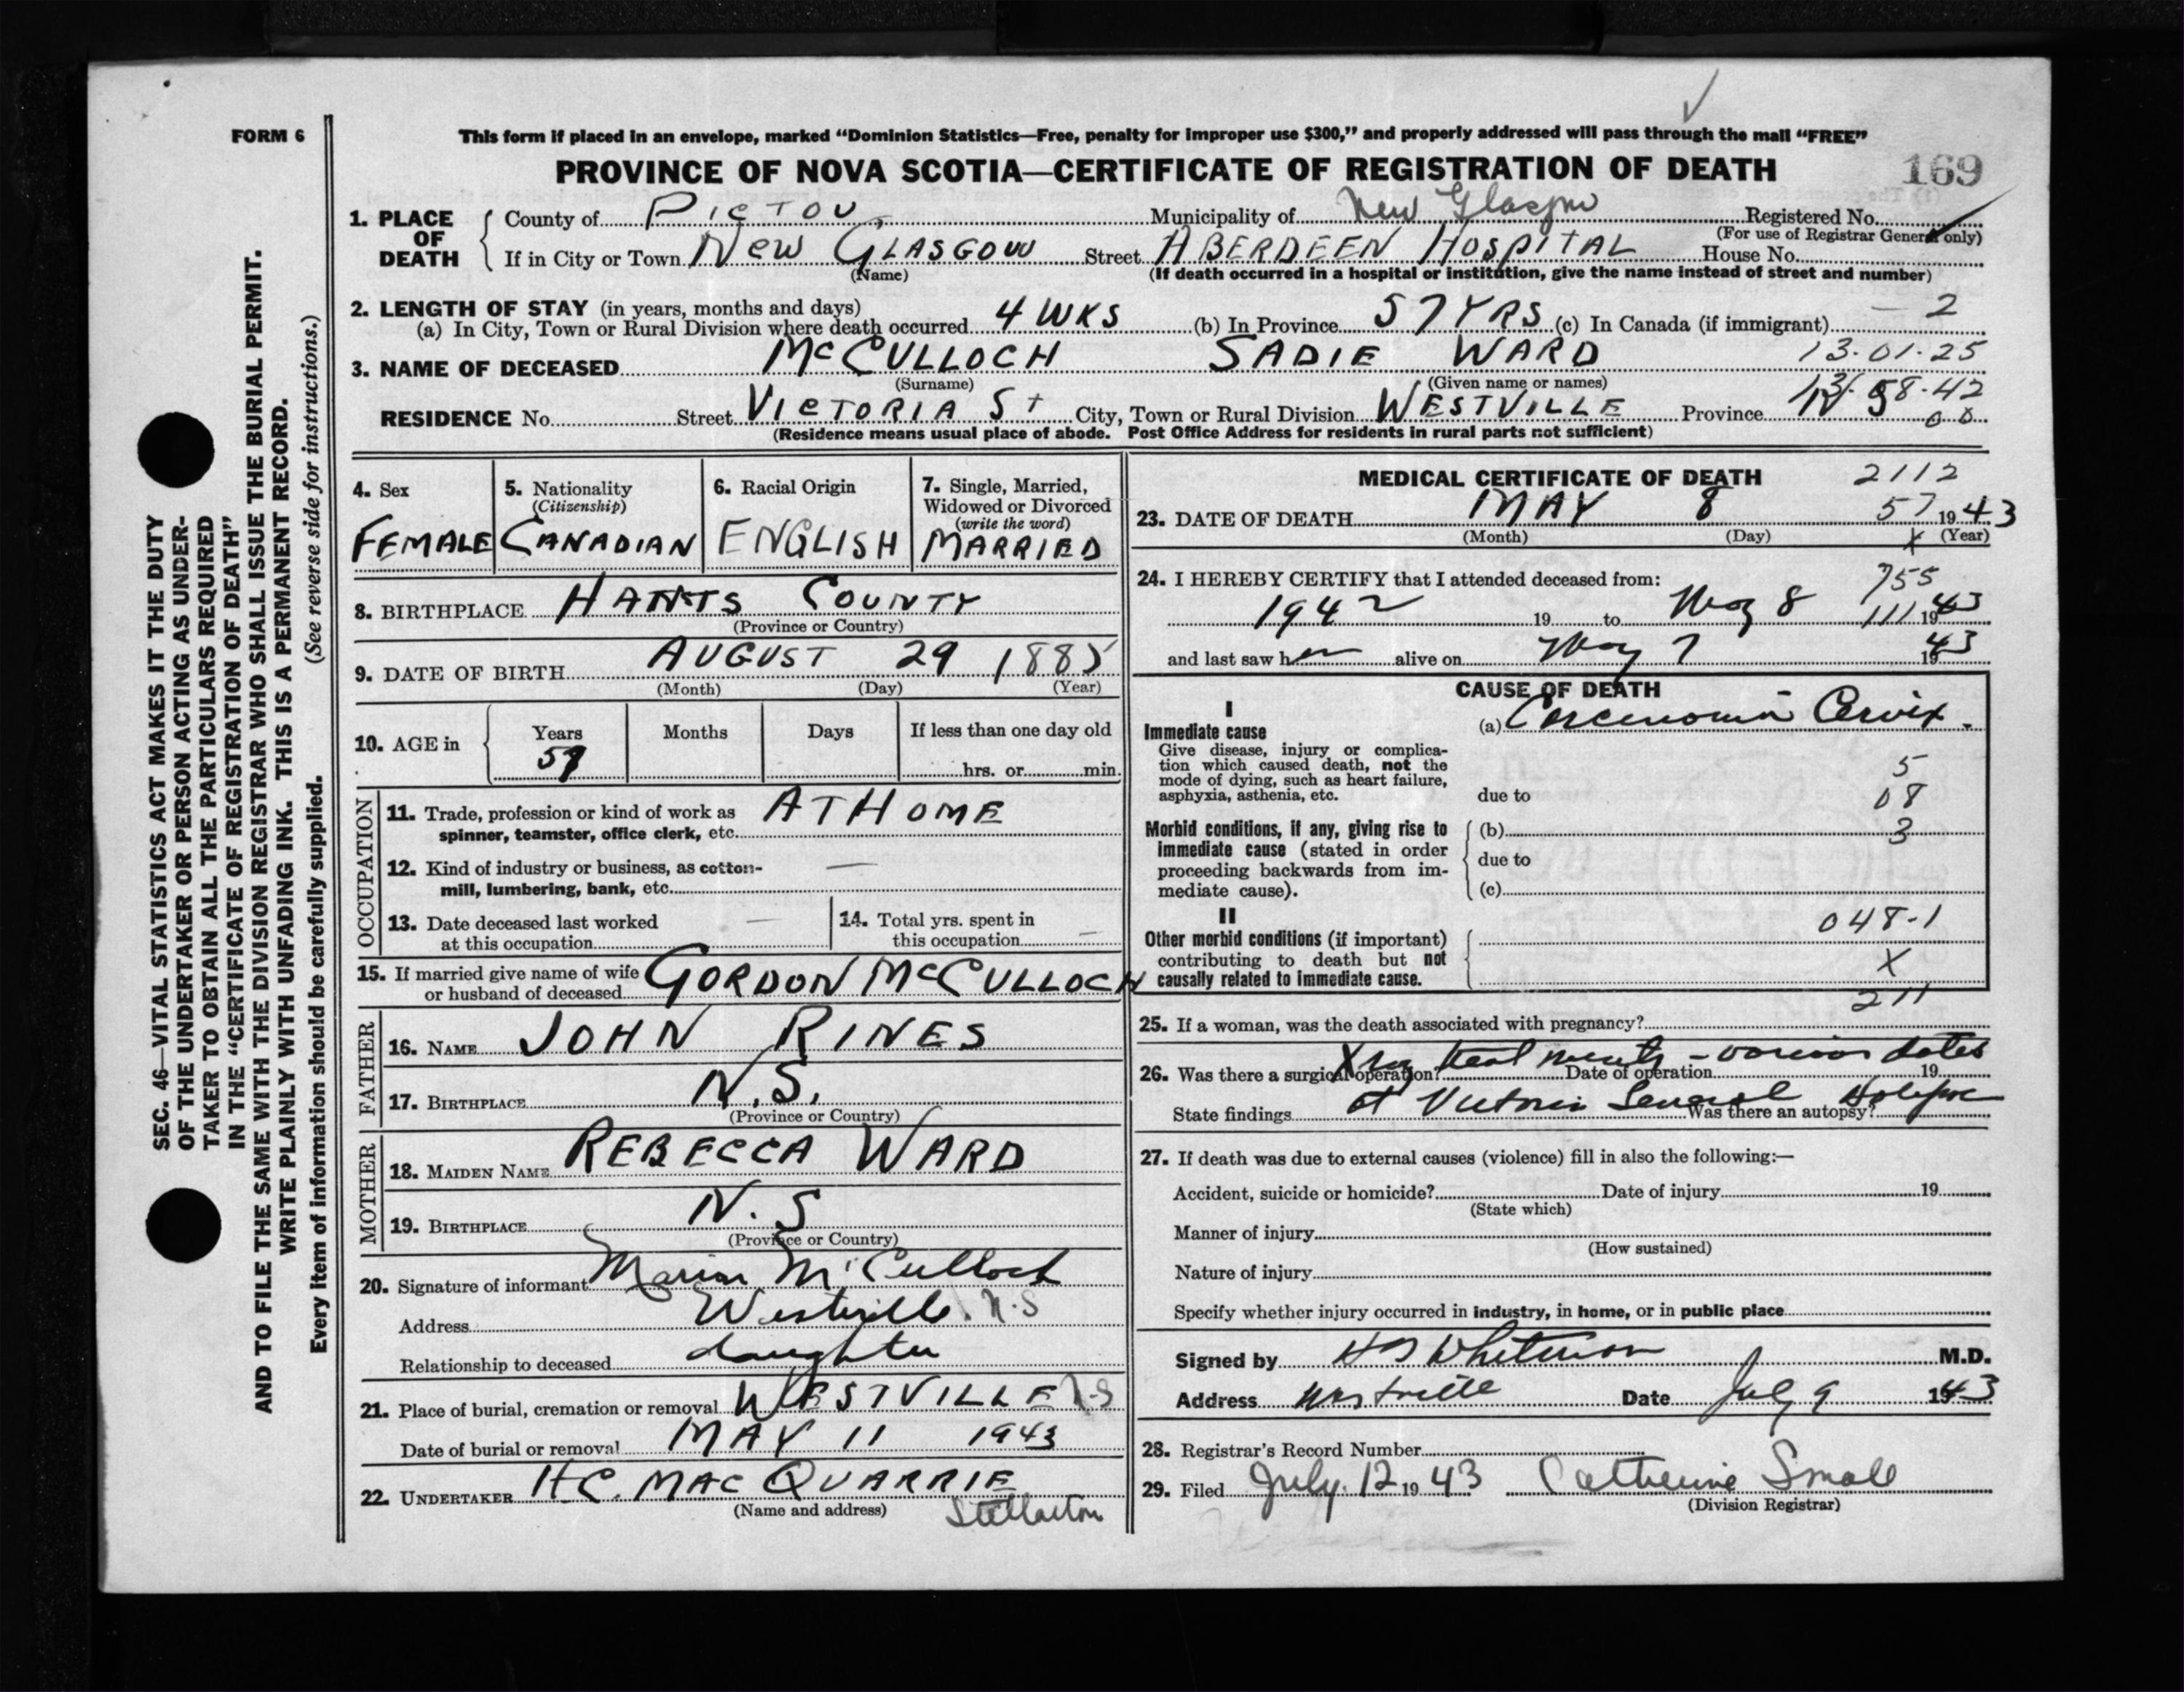 FORM 6
This form if placed in an envelope, marked “Dominion Statistics—Free, penalty for improper use $300,” and properly addressed will pass through the mail “FREE”
PROVINCE OF NOVA SCOTIA—CERTIFICATE OF REGISTRATION OF DEATH
169
SEC. 46—VITAL STATISTICS ACT MAKES IT THE DUTY
OF THE UNDERTAKER OR PERSON ACTING AS UNDER-
TAKER TO OBTAIN ALL THE PARTICULARS REQUIRED
IN THE “CERTIFICATE OF REGISTRATION OF DEATH”
AND TO FILE THE SAME WITH THE DIVISION REGISTRAR WHO SHALL ISSUE THE BURIAL PERMIT.
WRITE PLAINLY WITH UNFADING INK. THIS IS A PERMANENT RECORD.
Every item of information should be carefully supplied. (See reverse side for instructions.)
1. PLACE OF DEATH
County of PICTOU, Municipality of New Glasgow Registered No.
(For use of Registrar General only)
If in City or Town NEW GLASGOW Street ABERDEEN HOSPITAL House No.
(Name) (If death occurred in a hospital or institution, give the name instead of street and number)
2. LENGTH OF STAY (in years, months and days)
(a) In City, Town or Rural Division where death occurred 4 WKS (b) In Province 57 YRS (c) In Canada (if immigrant) — 2
3. NAME OF DECEASED MCCULLOCH SADIE WARD 13·01·25
(Surname) (Given name or names)
RESIDENCE No. Street VICTORIA St City, Town or Rural Division WESTVILLE Province 58·42
00
(Residence means usual place of abode. Post Office Address for residents in rural parts not sufficient)
4. Sex
FEMALE
5. Nationality
(Citizenship)
CANADIAN
6. Racial Origin
ENGLISH
7. Single, Married,
Widowed or Divorced
(write the word)
MARRIED
8. BIRTHPLACE HANTS COUNTY
(Province or Country)
9. DATE OF BIRTH AUGUST 29 1885
(Month) (Day) (Year)
10. AGE in
Years Months Days If less than one day old
57
hrs. or min.
OCCUPATION
11. Trade, profession or kind of work as AT HOME
spinner, teamster, office clerk, etc.
12. Kind of industry or business, as cotton- —
mill, lumbering, bank, etc.
13. Date deceased last worked —
at this occupation
14. Total yrs. spent in
this occupation —
15. If married give name of wife GORDON MCCULLOCH
or husband of deceased
FATHER
16. NAME JOHN RINES
17. BIRTHPLACE N.S.
(Province or Country)
MOTHER
18. MAIDEN NAME REBECCA WARD
19. BIRTHPLACE N.S
(Province or Country)
20. Signature of informant Marion McCulloch
Address Westville N.S
Relationship to deceased daughter
21. Place of burial, cremation or removal WESTVILLE N.S
Date of burial or removal MAY 11 1943
22. UNDERTAKER H.C. MACQUARRIE
(Name and address) Stellarton
MEDICAL CERTIFICATE OF DEATH 2112
23. DATE OF DEATH MAY 8 57 1943
(Month) (Day) X (Year)
24. I HEREBY CERTIFY that I attended deceased from: 755
1942 19 to May 8 111 1943
and last saw her alive on May 7 1943
CAUSE OF DEATH
I
Immediate cause
Give disease, injury or complica-
tion which caused death, not the
mode of dying, such as heart failure,
asphyxia, asthenia, etc.
(a) Carcenoma Cervix.
5
due to 08
Morbid conditions, if any, giving rise to
immediate cause (stated in order
proceeding backwards from im-
mediate cause).
(b) 3
due to
(c)
II
Other morbid conditions (if important)
contributing to death but not
causally related to immediate cause.
048·1
X
211
25. If a woman, was the death associated with pregnancy?
Xray treatments - various dates
26. Was there a surgical operation? Date of operation 19
at Victoria General Halifax
State findings Was there an autopsy?
27. If death was due to external causes (violence) fill in also the following:—
Accident, suicide or homicide? Date of injury 19
(State which)
Manner of injury
(How sustained)
Nature of injury
Specify whether injury occurred in industry, in home, or in public place
Signed by Whitman M.D.
Address Westville Date July 9 1943
28. Registrar’s Record Number
29. Filed July 12 1943 Catherine Small
(Division Registrar)